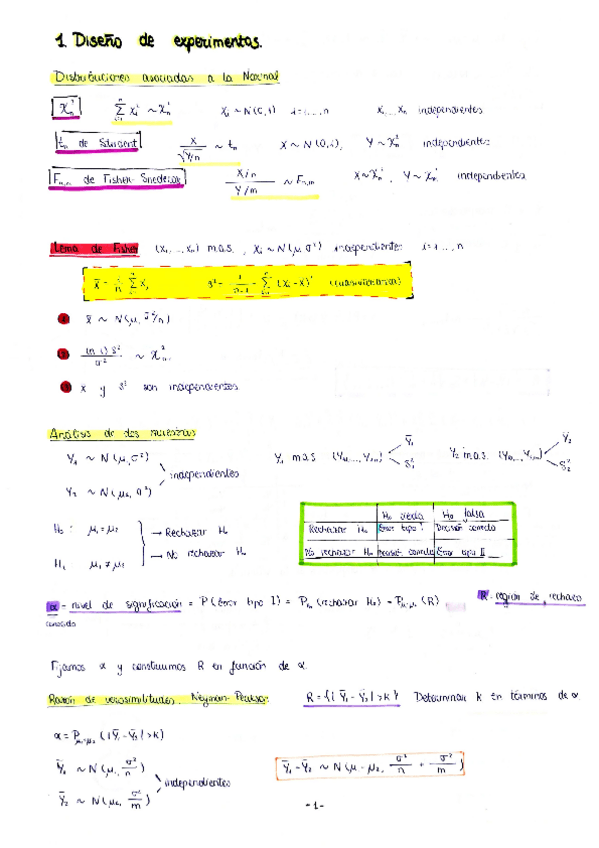 1. Diseño de experimentos.
Distribuciones asociadas a la Normal
χ²ₙ Σ Xᵢ² ~ χ²ₙ Xᵢ ~ N(0,1) i=1,...,n X₁...Xₙ independientes
tₙ de Student X/√(Y/n) ~ tₙ X ~ N(0,1), Y ~ χ²ₙ independientes
Fₙ,ₘ de Fisher-Snedecor (X/n)/(Y/m) ~ Fₙ,ₘ X ~ χ²ₙ, Y ~ χ²ₘ independientes
Lema de Fisher (X₁,...,Xₙ) m.a.s., Xᵢ ~ N(μ, σ²) independientes i=1,...,n
X̄ = 1/n Σ Xᵢ S² = 1/(n-1) Σ (Xᵢ - X̄)² (cuasivarianza)
1 X̄ ~ N(μ, σ²/n)
2 (n-1)S²/σ² ~ χ²
3 X̄ y S² son independientes
Análisis de dos muestras
Y₁ ~ N(μ₁, σ²)
Y₂ ~ N(μ₂, σ²)
independientes
Y₁ m.a.s. (Y₁₁,...,Y₁ₙ) Ȳ₁ S₁²
Y₂ m.a.s. (Y₂₁,...,Y₂ₘ) Ȳ₂ S₂²
H₀: μ₁ = μ₂ → Rechazar H₀
H₁ μ₁ ≠ μ₂ → No rechazar H₀
H₀ cierta H₀ falsa
Rechazar H₀ Error tipo I Decisión correcta
No rechazar H₀ Decisión correcta Error tipo II
α - nivel de significación = P(Error tipo I) = P_H₀ (rechazar H₀) = P_μ₁=μ₂ (R) R - región de rechazo
conocido
Fijamos α y construimos R en función de α.
Razón de verosimilitudes. Neyman-Pearson R = {|Ȳ₁ - Ȳ₂| > k} Determinar k en términos de α.
α = P_μ₁=μ₂ (|Ȳ₁ - Ȳ₂| > k)
Ȳ₁ ~ N(μ₁, σ²/n)
Ȳ₂ ~ N(μ₂, σ²/m)
independientes
Ȳ₁ - Ȳ₂ ~ N(μ₁ - μ₂, σ²/n + σ²/m)
-1-